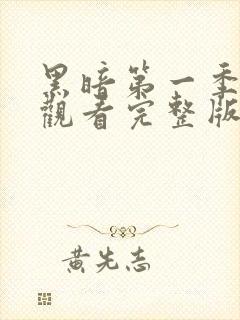 黑暗第一季
觀看完整版
黃先志